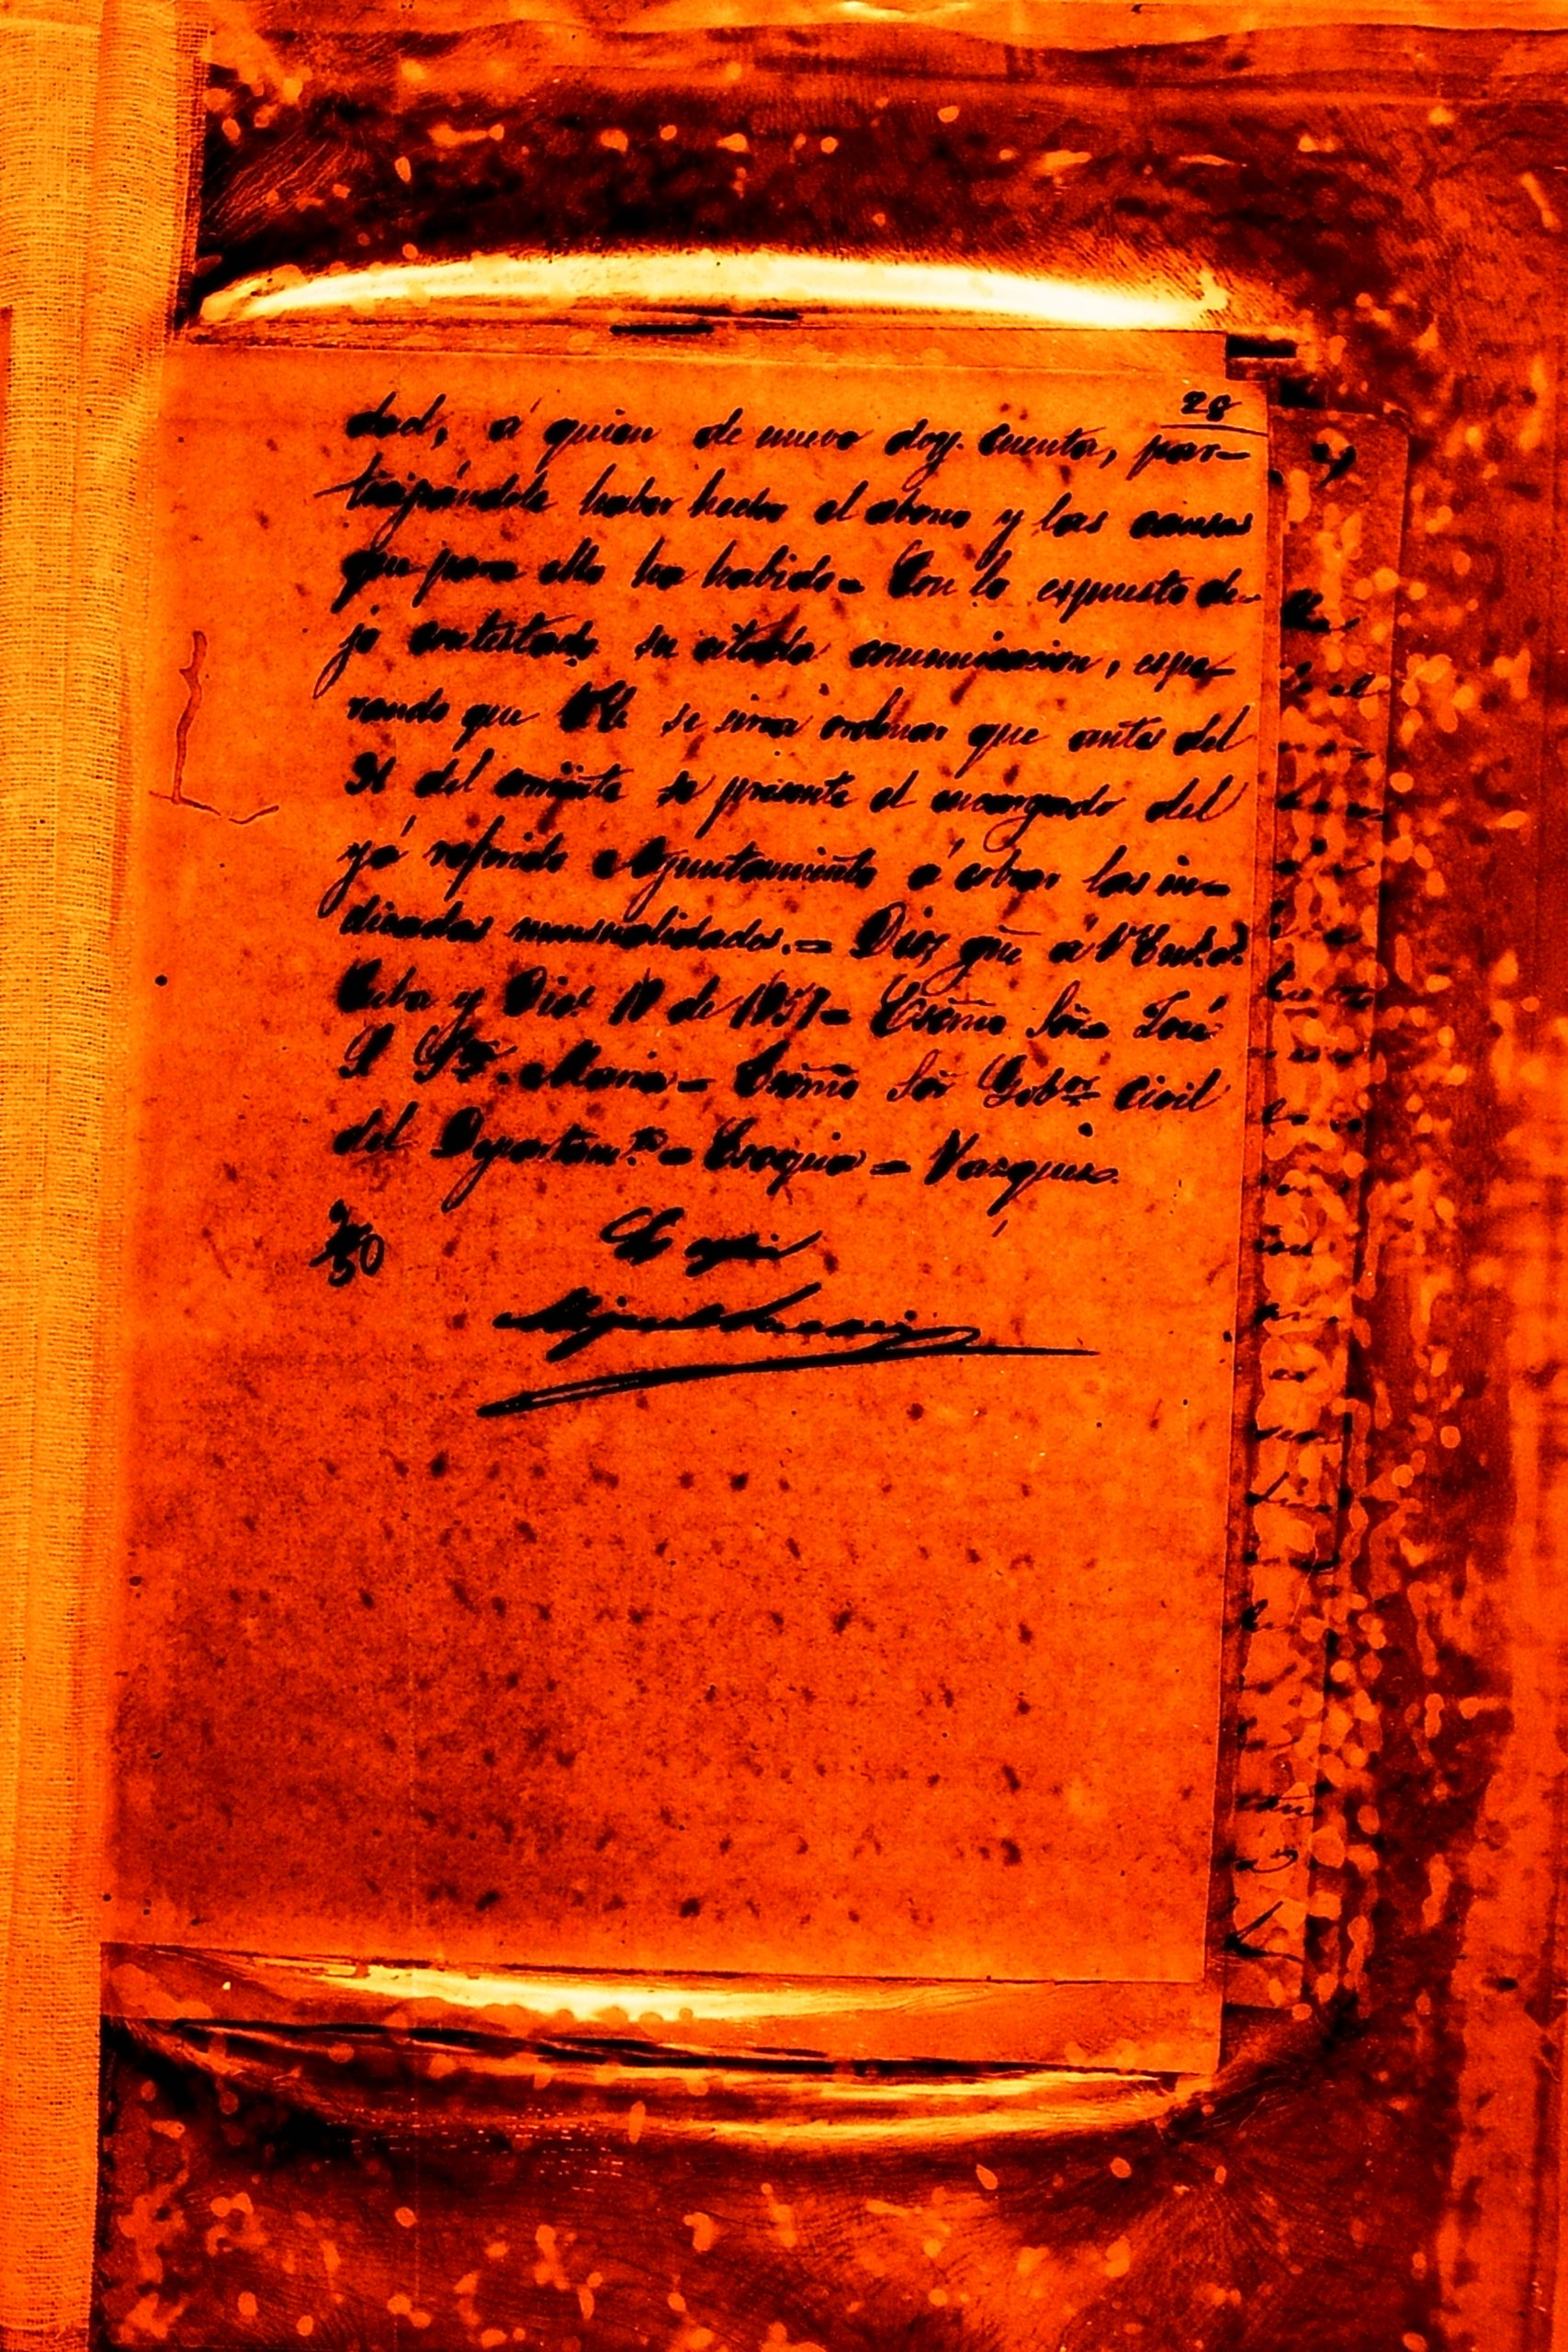 28
dad, á quien de nuevo doy cuenta, par-
ticipándole haber hecho el abono y las causas
que para ello ha habido= Con lo espuesto de-
jo contestada su citada comunicacion, espe-
rando que VE se sirva ordenar que antes del
del corriente se presente el encargado del
yá referido Ayuntamiento á cobrar las in-
dicadas mensualidades.= Dios gue á VE
Cuba y Dic.e de 1857= Escmo Sor José
Sta. Maria= Escmo Sor Gobor civil
del Departamto= Vazquez.
Es copia
Miguel